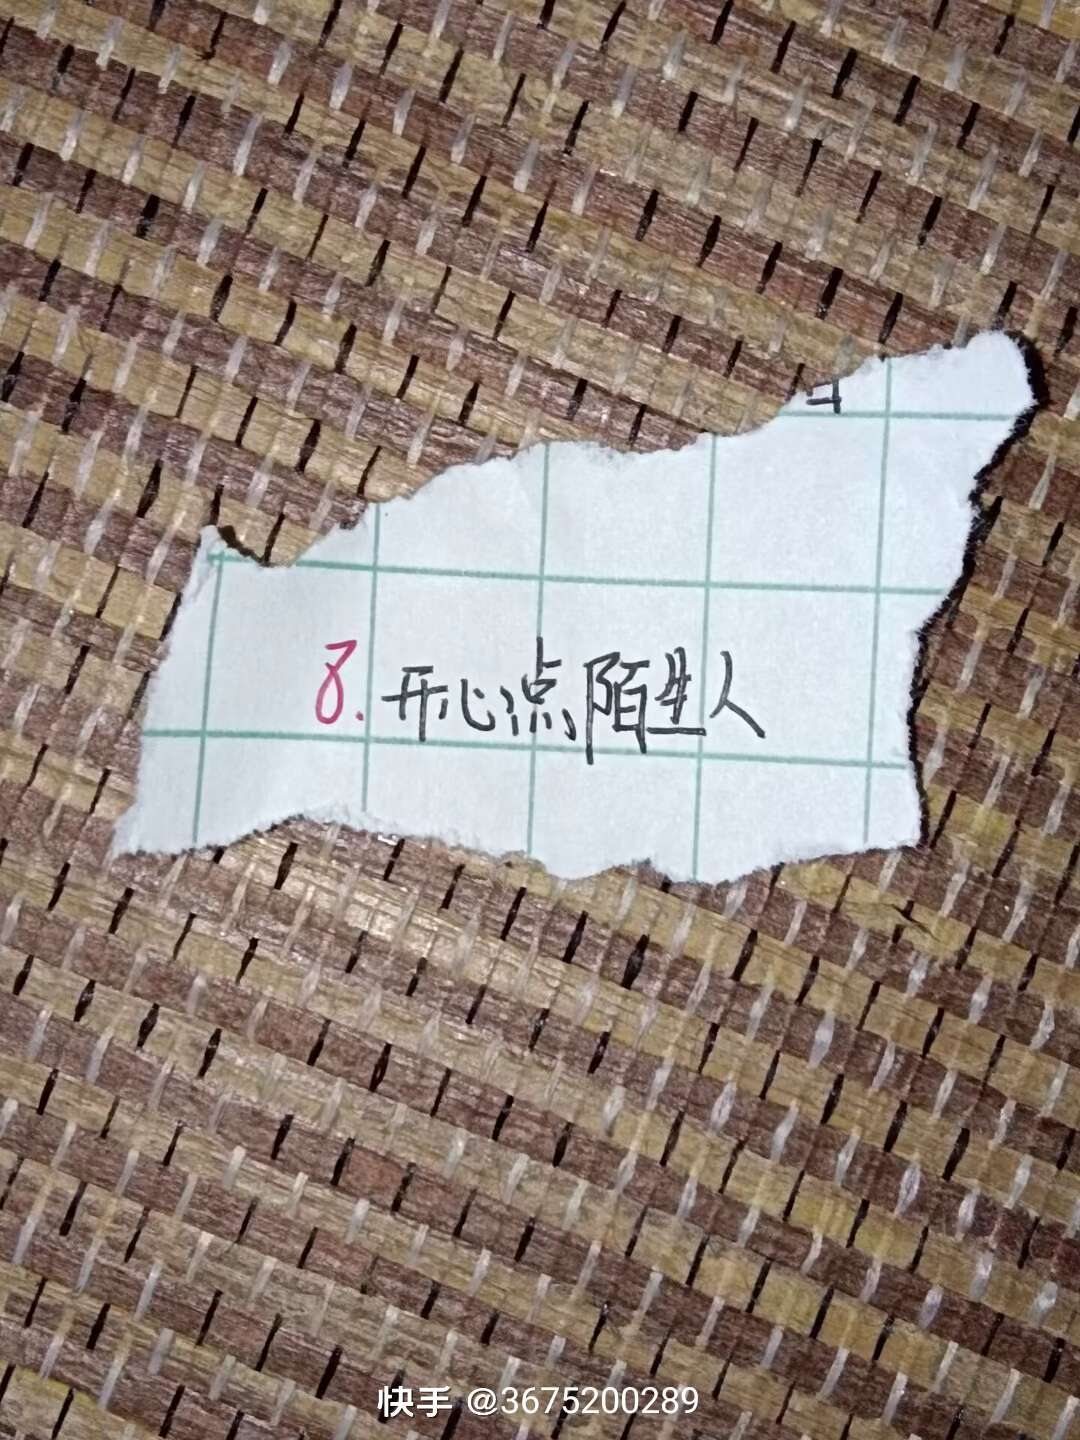 8.开心点陌生人
快手 @3675200289